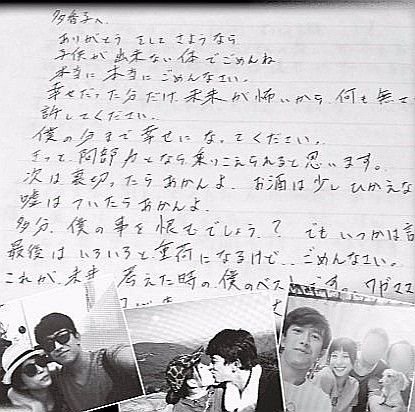 多香子へ
ありがとう そして さようなら
子供が出来ない体でごめんね
本当に本当にごめんなさい。
幸せだった分だけ、未来が怖いから、何も無
許してください。
僕の分まで幸せになってください。
きっと、阿部力となら乗りこえられると思います。
次は裏切ったらあかんよ。お酒は少しひかえな
嘘はついたらあかんよ。
多分、僕の事を恨むでしょう？でもいつかは
最後はいろいろと重荷になるけど、ごめんなさい。
これが、未来 考えた時の僕のベスト です。ワガママ